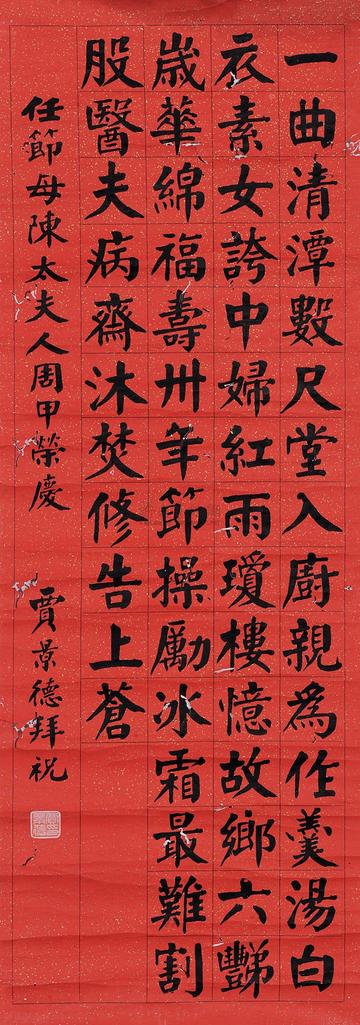 一曲清潭數尺堂入廚親為作羹湯白
衣素女誇中婦紅雨瓊樓憶故鄉六豑
歲華綿福壽卅年節操勵冰霜最難割
股醫夫病齋沐焚修告上蒼
任節母陳太夫人周甲榮慶 賈景德拜祝